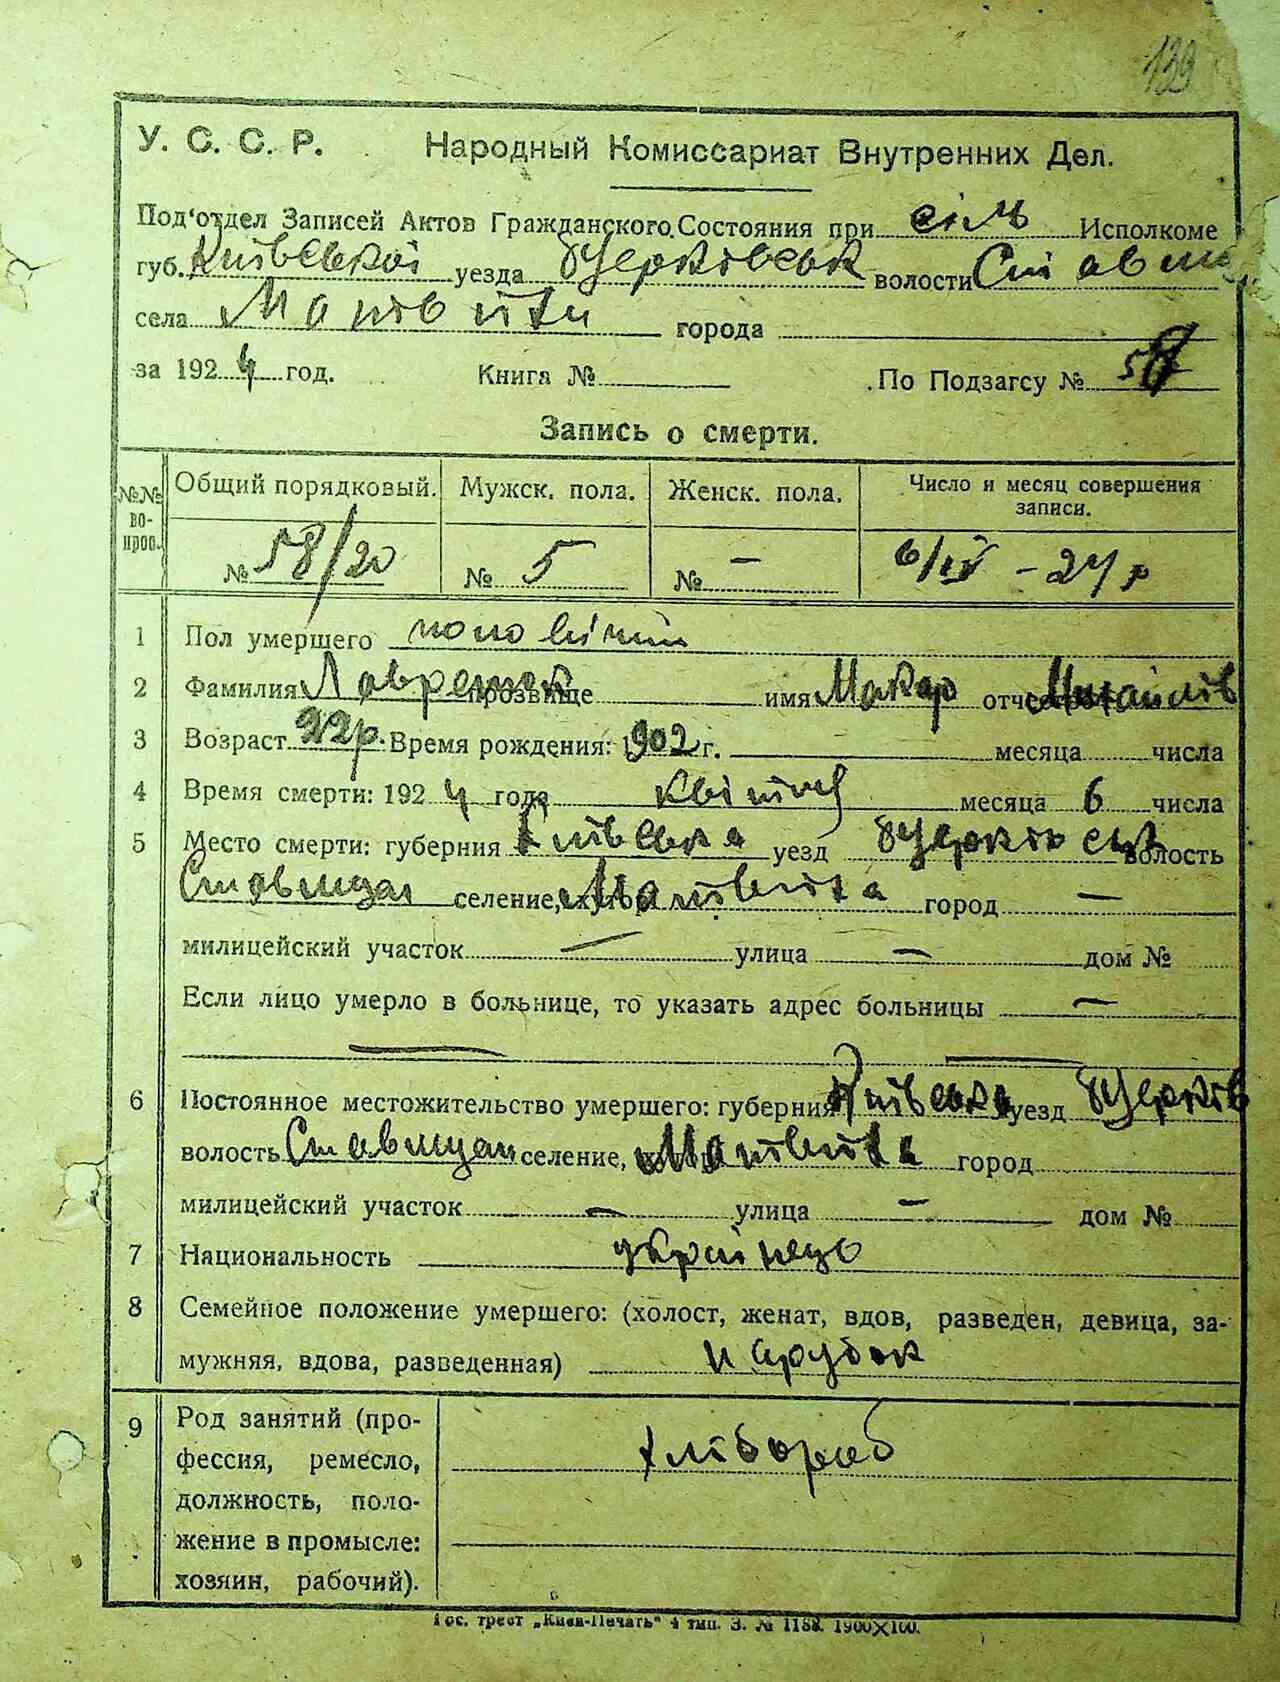 139
У. С. С. Р. Народный Комиссариат Внутренних Дел.
Под'отдел Записей Актов Гражданского Состояния при сіль Исполкоме
губ. Київської уезда БЦерківськ волости Ставищ
села Матвійки города
за 1924 год. Книга № По Подзагсу №
Запись о смерти.
№№ вопрос. Общий порядковый. Мужск. пола. Женск. пола. Число и месяц совершения записи.
№ 58/20 № 5 № — 6/IV – 24 р
1 Пол умершего чоловічий
2 Фамилия Лавренюк прозвище имя Макар отчество Михайлів
3 Возраст 22р. Время рождения: 1902 г. месяца числа
4 Время смерти: 1924 года квітня месяца 6 числа
5 Место смерти: губерния Київська уезд БЦерківськ волость
Ставищан селение, Матвійка город —
милицейский участок — улица — дом №
Если лицо умерло в больнице, то указать адрес больницы —
— —
6 Постоянное местожительство умершего: губерния Київська уезд БЦерків
волость Ставищан селение, Матвійка город
милицейский участок — улица — дом №
7 Национальность українець
8 Семейное положение умершего: (холост, женат, вдов, разведен, девица, за-
мужняя, вдова, разведенная) парубок
9 Род занятий (про-
фессия, ремесло, хлібороб
должность, поло-
жение в промысле:
хозяин, рабочий).
Гос. трест „Киев-Печать" 4 тип. З. № 1188. 1900×100.